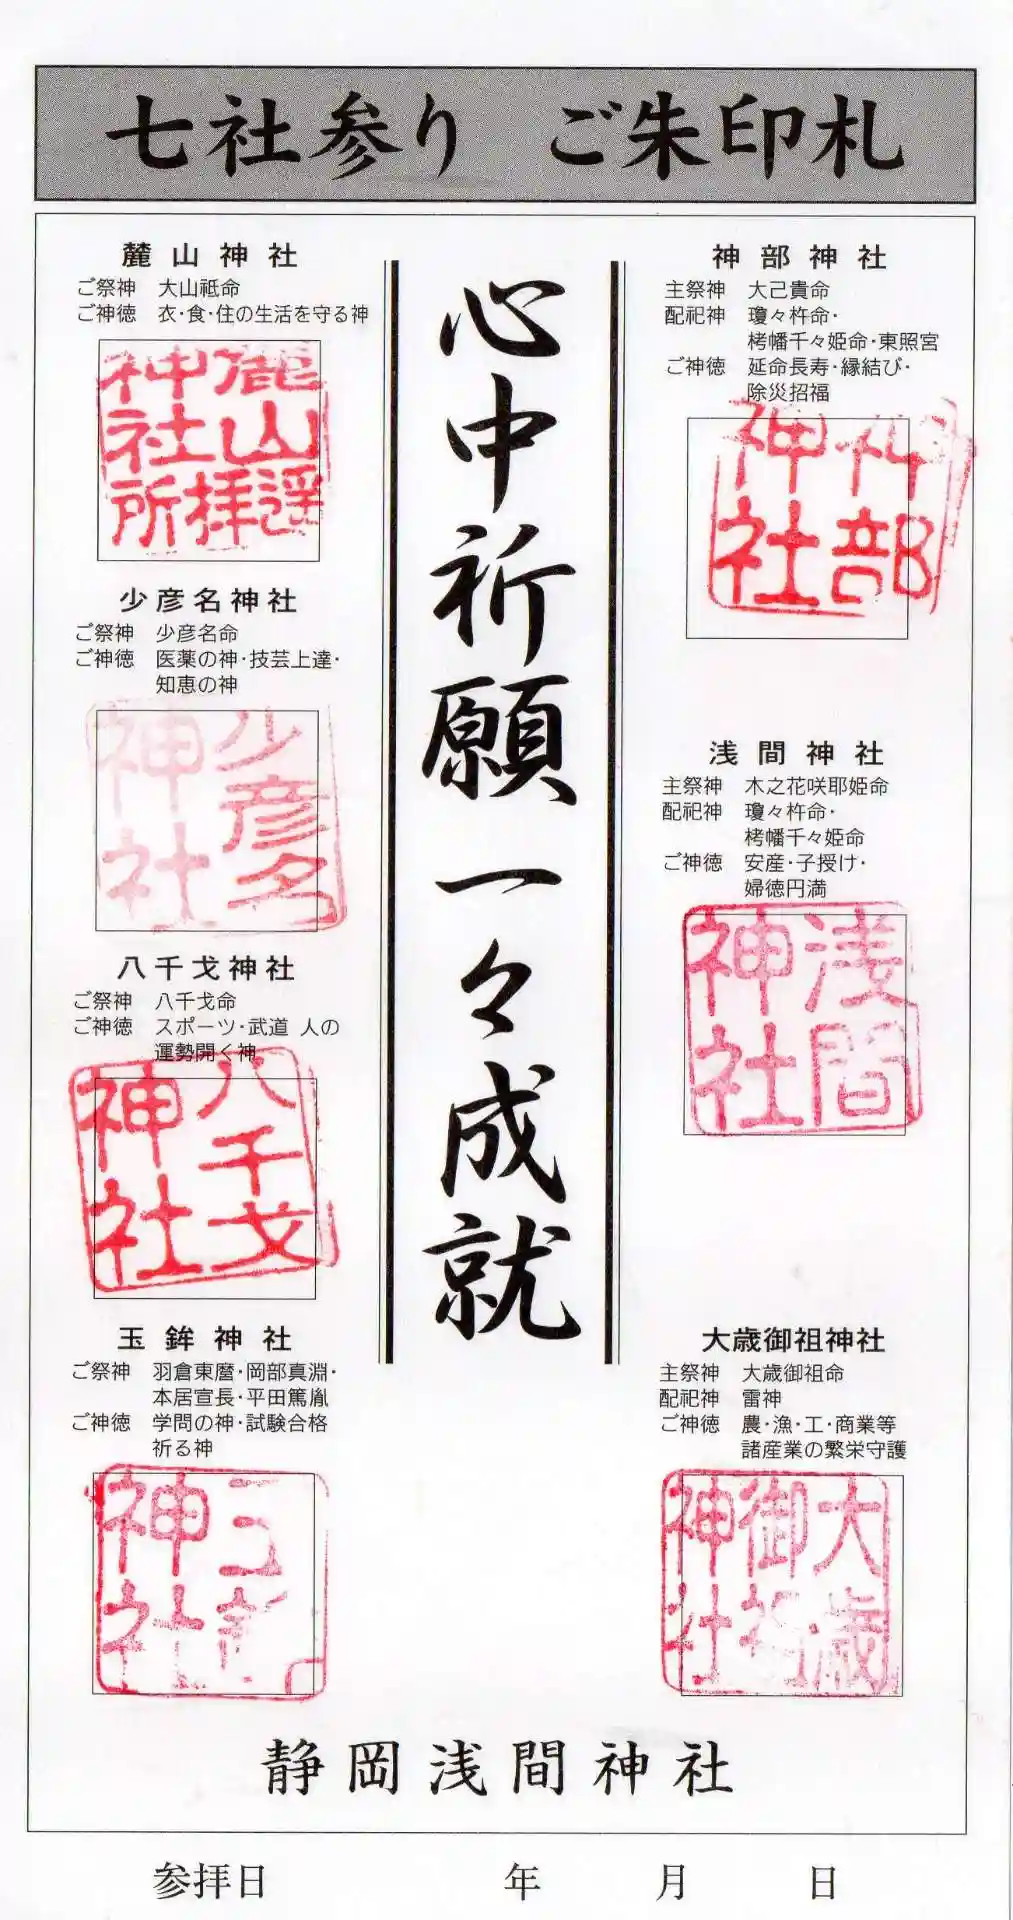 七社参り ご朱印札
神部神社
主祭神 大己貴命
配祀神 瓊々杵命・
栲幡千々姫命・東照宮
ご神徳 延命長寿・縁結び・
除災招福
神部
神社
浅間神社
主祭神 木之花咲耶姫命
配祀神 瓊々杵命・
栲幡千々姫命
ご神徳 安産・子授け・
婦徳円満
浅間
神社
大歳御祖神社
主祭神 大歳御祖命
配祀神 雷神
ご神徳 農・漁・工・商業等
諸産業の繁栄守護
大歳
御祖
神社
心中祈願一々成就
麓山神社
ご祭神 大山祗命
ご神徳 衣・食・住の生活を守る神
麓山遥
拝
神社所
少彦名神社
ご祭神 少彦名命
ご神徳 医薬の神・技芸上達・
知恵の神
少彦名
神社
八千戈神社
ご祭神 八千戈命
ご神徳 スポーツ・武道 人の
運勢開く神
八千戈
神社
玉鉾神社
ご祭神 羽倉東麿・岡部真淵・
本居宣長・平田篤胤
ご神徳 学問の神・試験合格
祈る神
神社
静岡浅間神社
参拝日 年 月 日